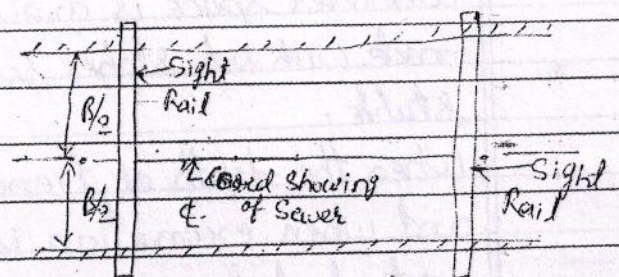 Sight
Rail
B/2
Cord showing
℄ of Sewer
B/2
Sight
Rail